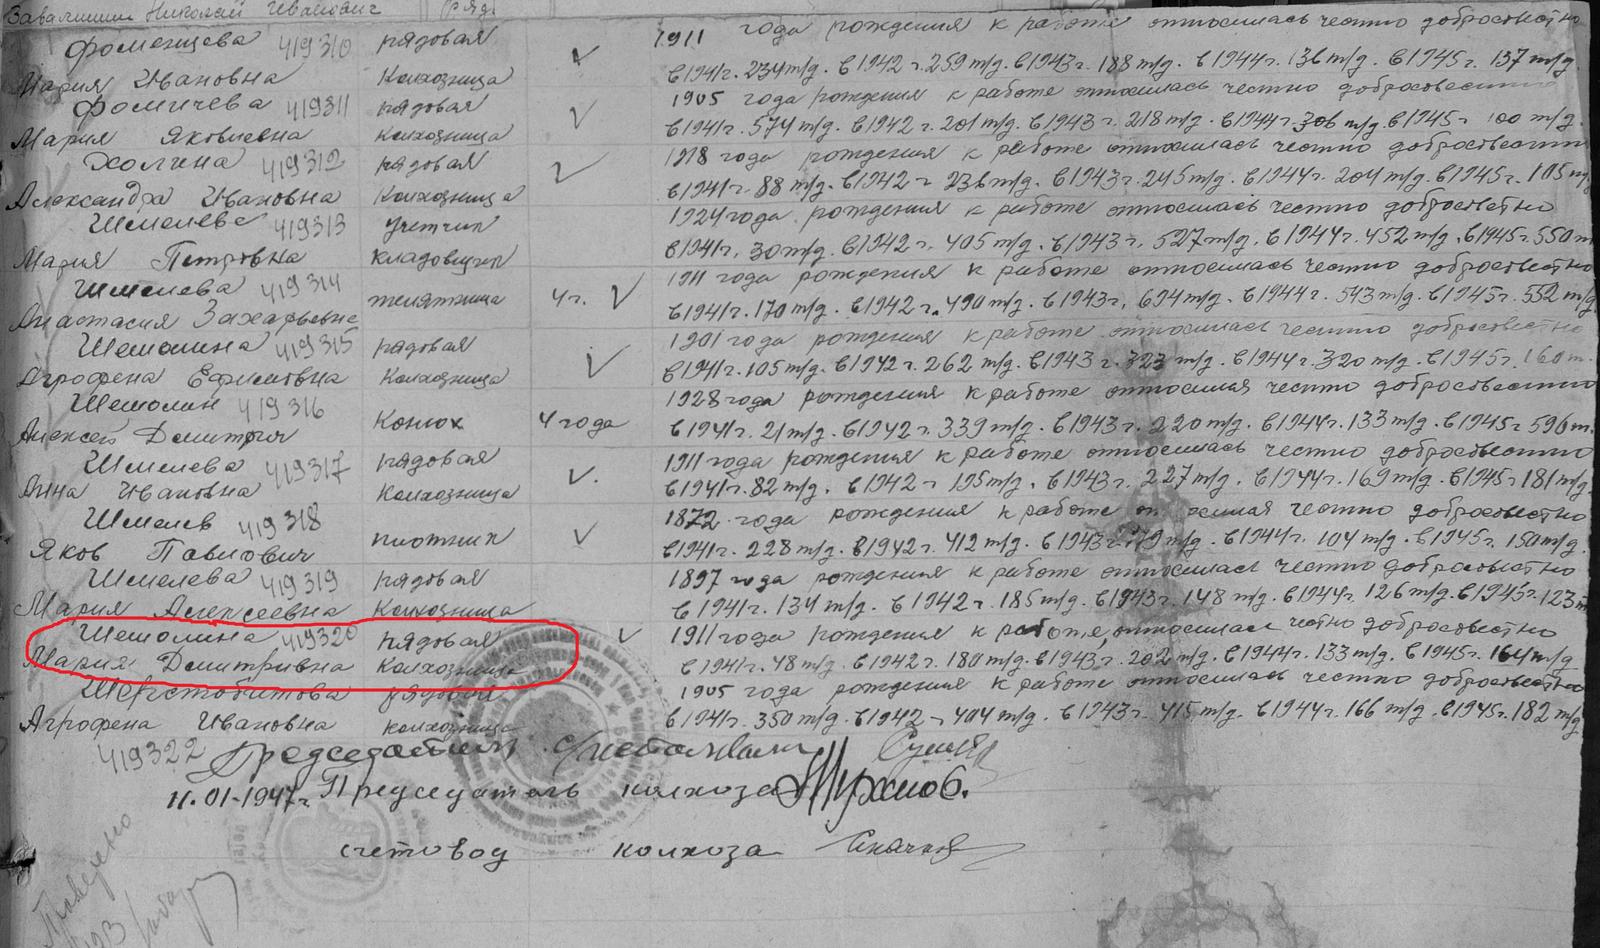 Завалишин Николай Иванович ряд.
Фоменцева 419310 рядовая 1911 года рождения к работе относилась честно добросвестно
Мария Ивановна Колхозница в1941г. 234т/д. в1942 г. 259т/д. в1943г. 188т/д. в1944г. 136т/д. в1945г. 137т/д.
Фомичева 419311 рядовая 1905 года рождения к работе относилась честно добросовестно
Мария Яковлевна колхозница в1941г. 574т/д. в1942 г. 201т/д. в1943г. 218т/д. в1944г. 306 т/д. в1945г 100 т/д.
Холина 419312 рядовая 1918 года рождения к работе относилась честно добросвестно
Александра Ивановна Колхозница в1941г. 88т/д. в1942 г 236т/д. в1943г. 245т/д. в1944г. 204т/д. в1945г. 105 т/д
Шмелева 419313 учетчик 1924года рождения к работе относилась честно добросвестно
Мария Петровна кладовщик в1941г. 30т/д. в1942г. 405т/д. в1943г. 527т/д. в1944г. 452т/д. в1945г. 550т
Шмелева 419314 телятница 4г. 1911 года рождения к работе относилась честно добросвестно
Анастасия Захарьевна в1941г. 170т/д. в1942г. 490т/д. в1943г. 694т/д. в1944г. 543т/д. в1945г. 552т/д
Шемолина 419315 рядовая 1901 года рождения к работе относилась честно добросвестно
Агрофена Ефимовна Колхозница в1941г. 105т/д. в1942г. 262т/д. в1943г. 323т/д. в1944г. 320т/д. в1945г. 160т.
Шемолин 419316 Конюх 4 года 1928года рождения к работе относился честно добросвестно
Алексей Дмитрич в1941г. 21т/д. в1942г. 339т/д. в1943г. 220т/д. в1944г. 133т/д. в1945г 596т.
Шмелева 419317 рядовая 1911 года рождения к работе относилась честно добросвестно
Анна Ивановна колхозница в1941г. 82т/д. в1942г 195т/д. в1943г. 227т/д. в1944г. 169т/д. в1945г 181т/д.
Шмелев 419318 плотник 1872 года рождения к работе честно добросовестно
Яков Павлович в1941г. 228т/д. в1942г. 412т/д. в1943г. в1944г. 104т/д. в1945г. 150т/д.
Шмелева 419319 рядовая 1897 года рождения к работе относилась честно добросвестно
Мария Алексеевна Колхозница в1941г. 134т/д. в1942г. 185т/д. в1943г. 148т/д. в1944г. 126т/д. в1945г. 123т
Шемолина 419320 рядовая 1911года рождения к работе относилась честно добросвестно
Мария Дмитривна колхозница в1941г. 48т/д. в1942г. 180т/д. в1943г. 202т/д. в1944г. 133т/д. в1945г. 164т/д
Шерстобитова рядовая 1905 года рождения к работе относилась честно добросвестно
Агрофена Ивановна колхозница в1941г. 350т/д. в1942г 404т/д. в1943г. 415т/д. в1944г. 166т/д. в1945г. 182т/д
419322 Председатель с/исполкома
11.01-1947г. Председатель колхоза
счетовод колхоза
Проверено